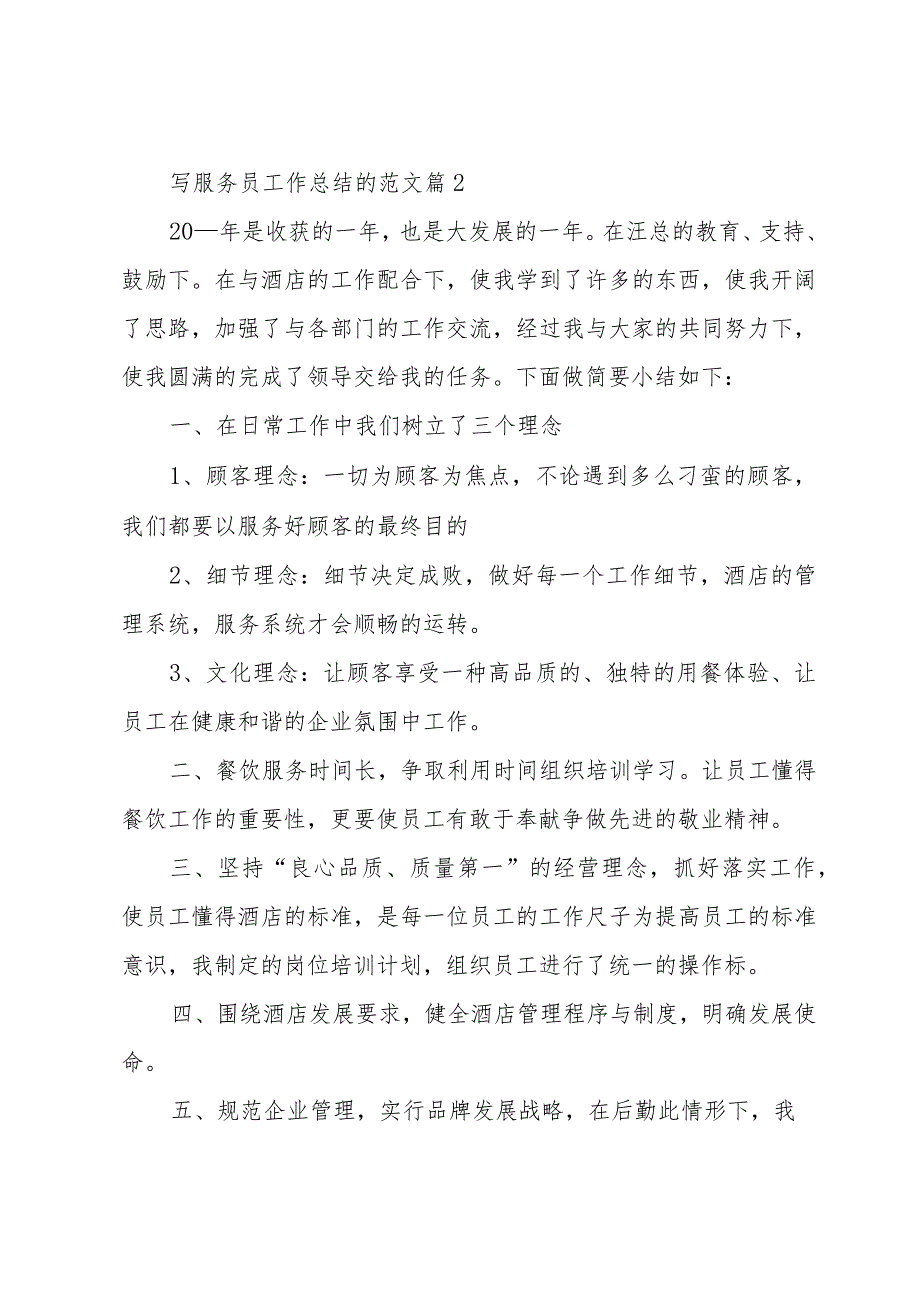 写服务员工作总结的范文篇2
20一年是收获的一年，也是大发展的一年。在汪总的教育、支持、
鼓励下。在与酒店的工作配合下，使我学到了许多的东西，使我开阔
了思路，加强了与各部门的工作交流，经过我与大家的共同努力下，
使我圆满的完成了领导交给我的任务。下面做简要小结如下：
一、在日常工作中我们树立了三个理念
1、顾客理念：一切为顾客为焦点，不论遇到多么刁蛮的顾客，
我们都要以服务好顾客的最终目的
2、细节理念：细节决定成败，做好每一个工作细节，酒店的管
理系统，服务系统才会顺畅的运转。
3、文化理念：让顾客享受一种高品质的、独特的用餐体验、让
员工在健康和谐的企业氛围中工作。
二、餐饮服务时间长，争取利用时间组织培训学习。让员工懂得
餐饮工作的重要性，更要使员工有敢于奉献争做先进的敬业精神。
三、坚持“良心品质、质量第一”的经营理念，抓好落实工作，
使员工懂得酒店的标准，是每一位员工的工作尺子为提高员工的标准
意识，我制定的岗位培训计划，组织员工进行了统一的操作标。
四、围绕酒店发展要求，健全酒店管理程序与制度，明确发展使
命。
五、规范企业管理，实行品牌发展战略，在后勤此情形下，我